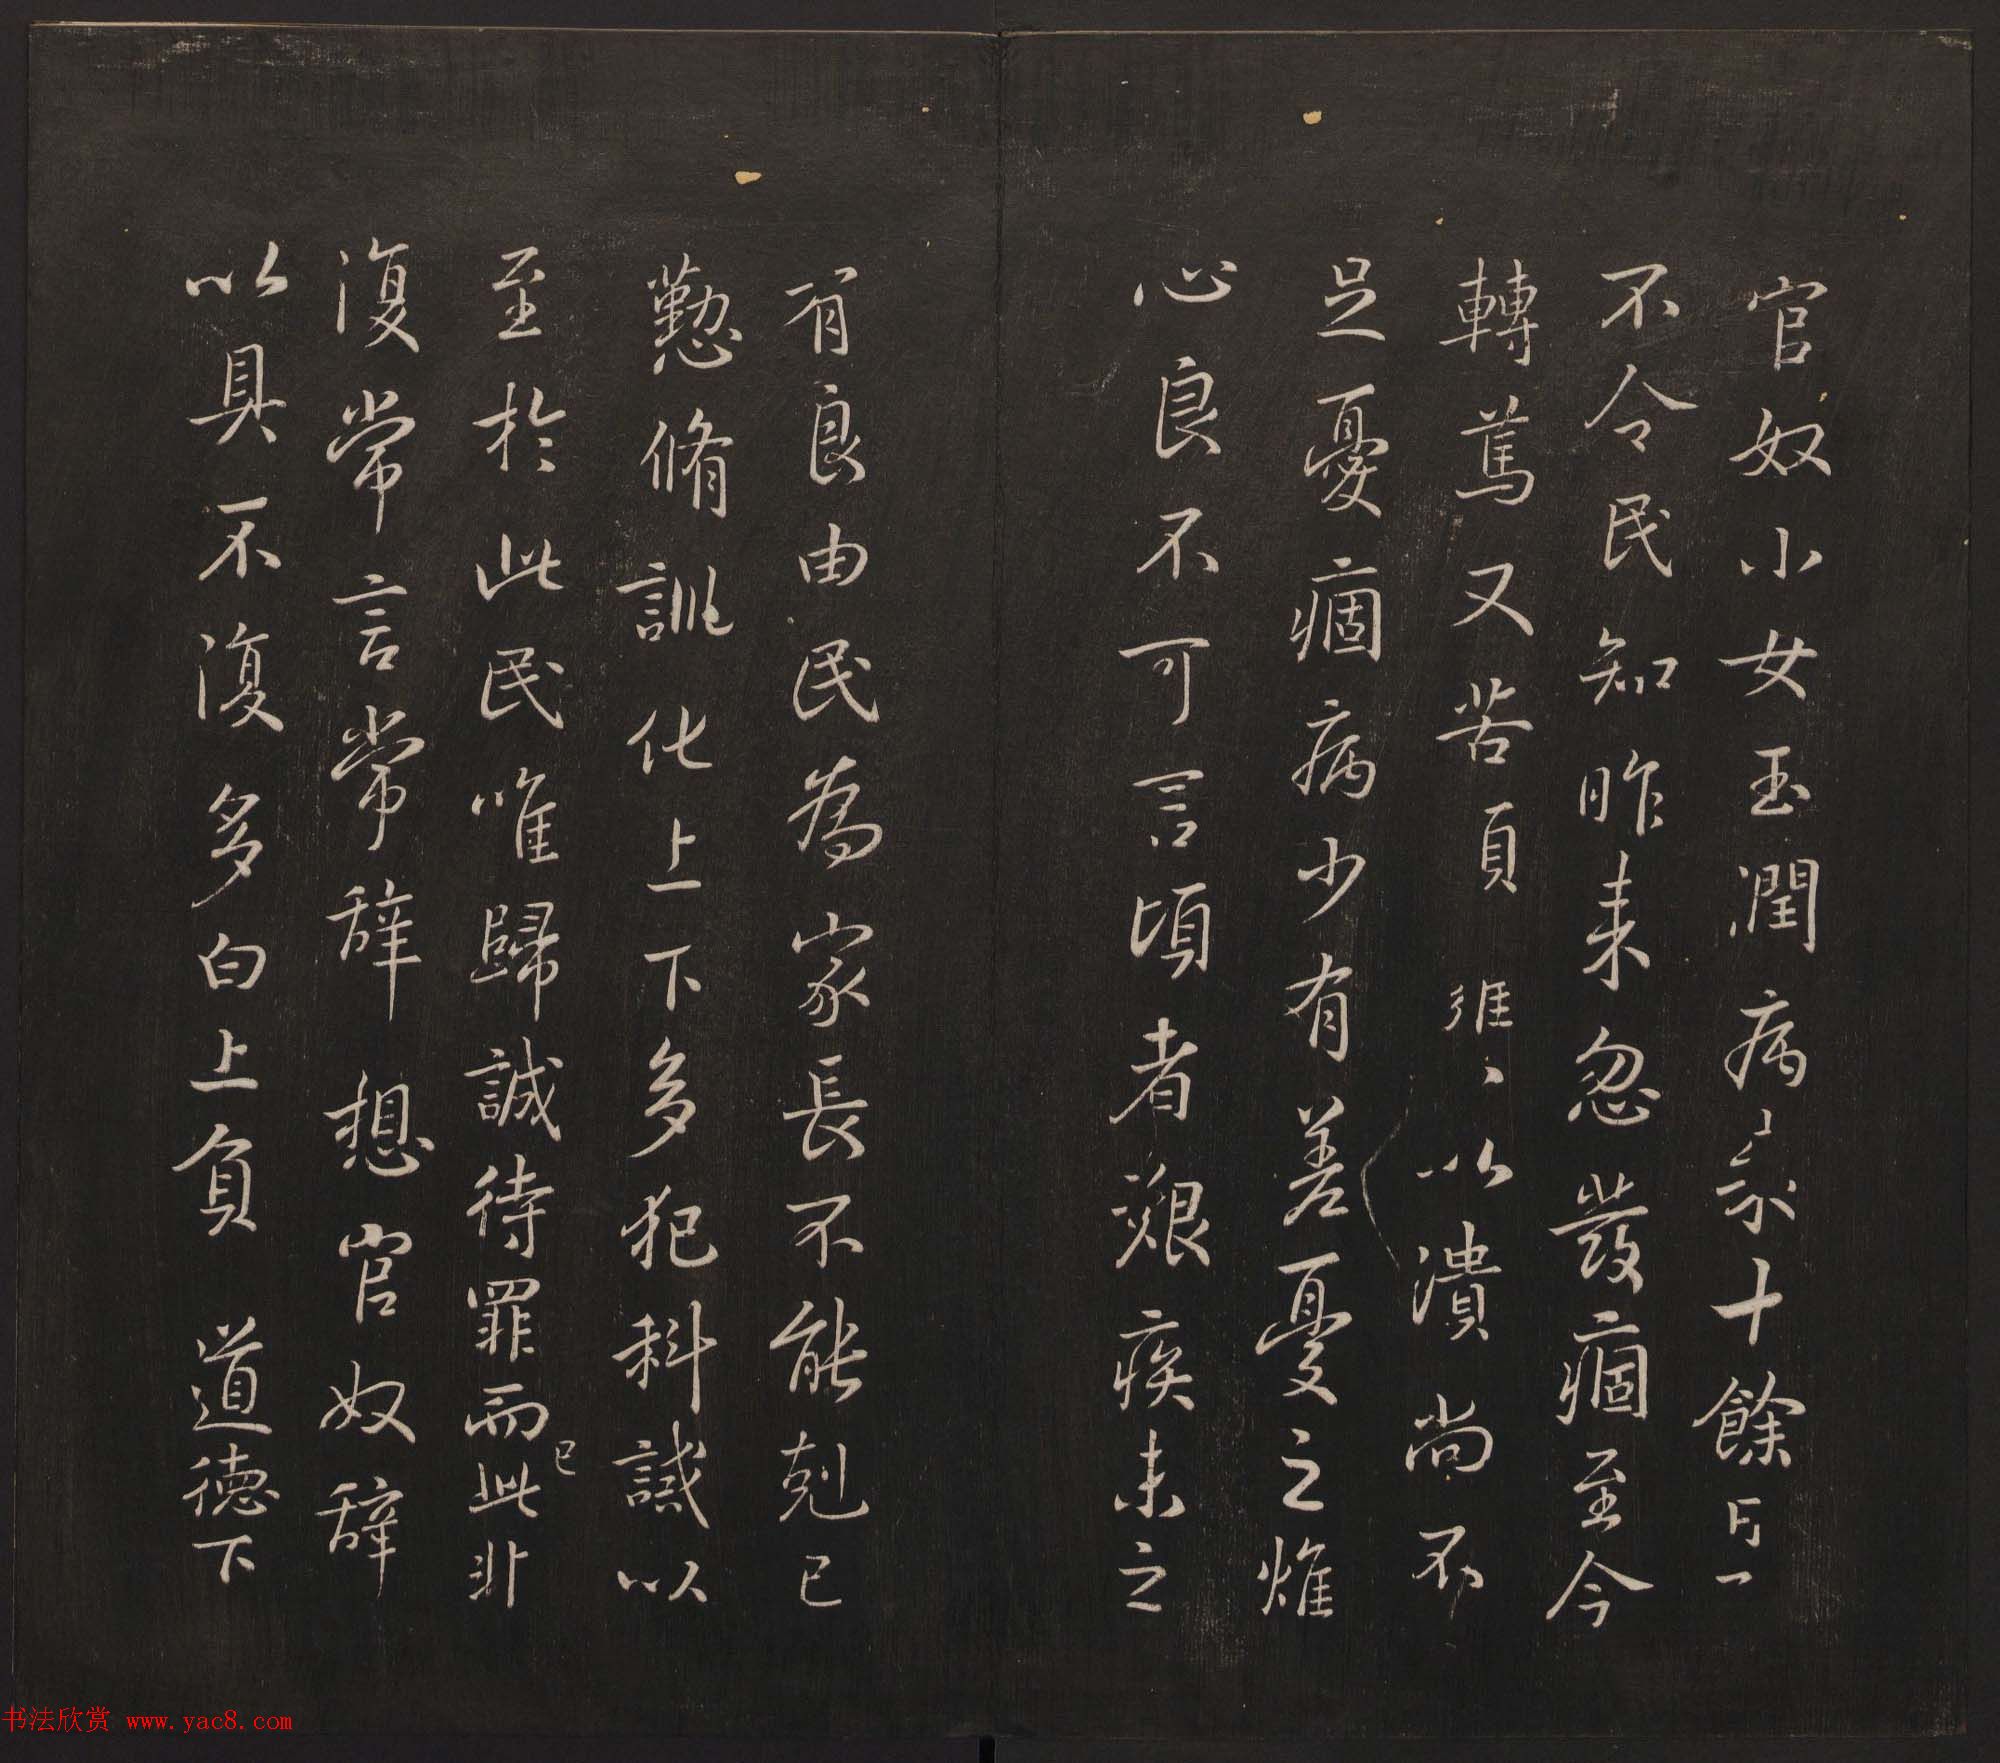 官奴小女玉潤病来十餘日一
不令民知昨来忽發痼至今
轉篤又苦頭癰癰以潰尚不
足憂痼病少有差憂之燋
心良不可言頃者艱疾未之
有良由民為家長不能剋已
懃脩訓化上下多犯科誡以
至於此民唯歸誠待罪而已此非
復常言常辞想官奴辞
以具不復多白上負 道德下
书法欣赏 www.yac8.com